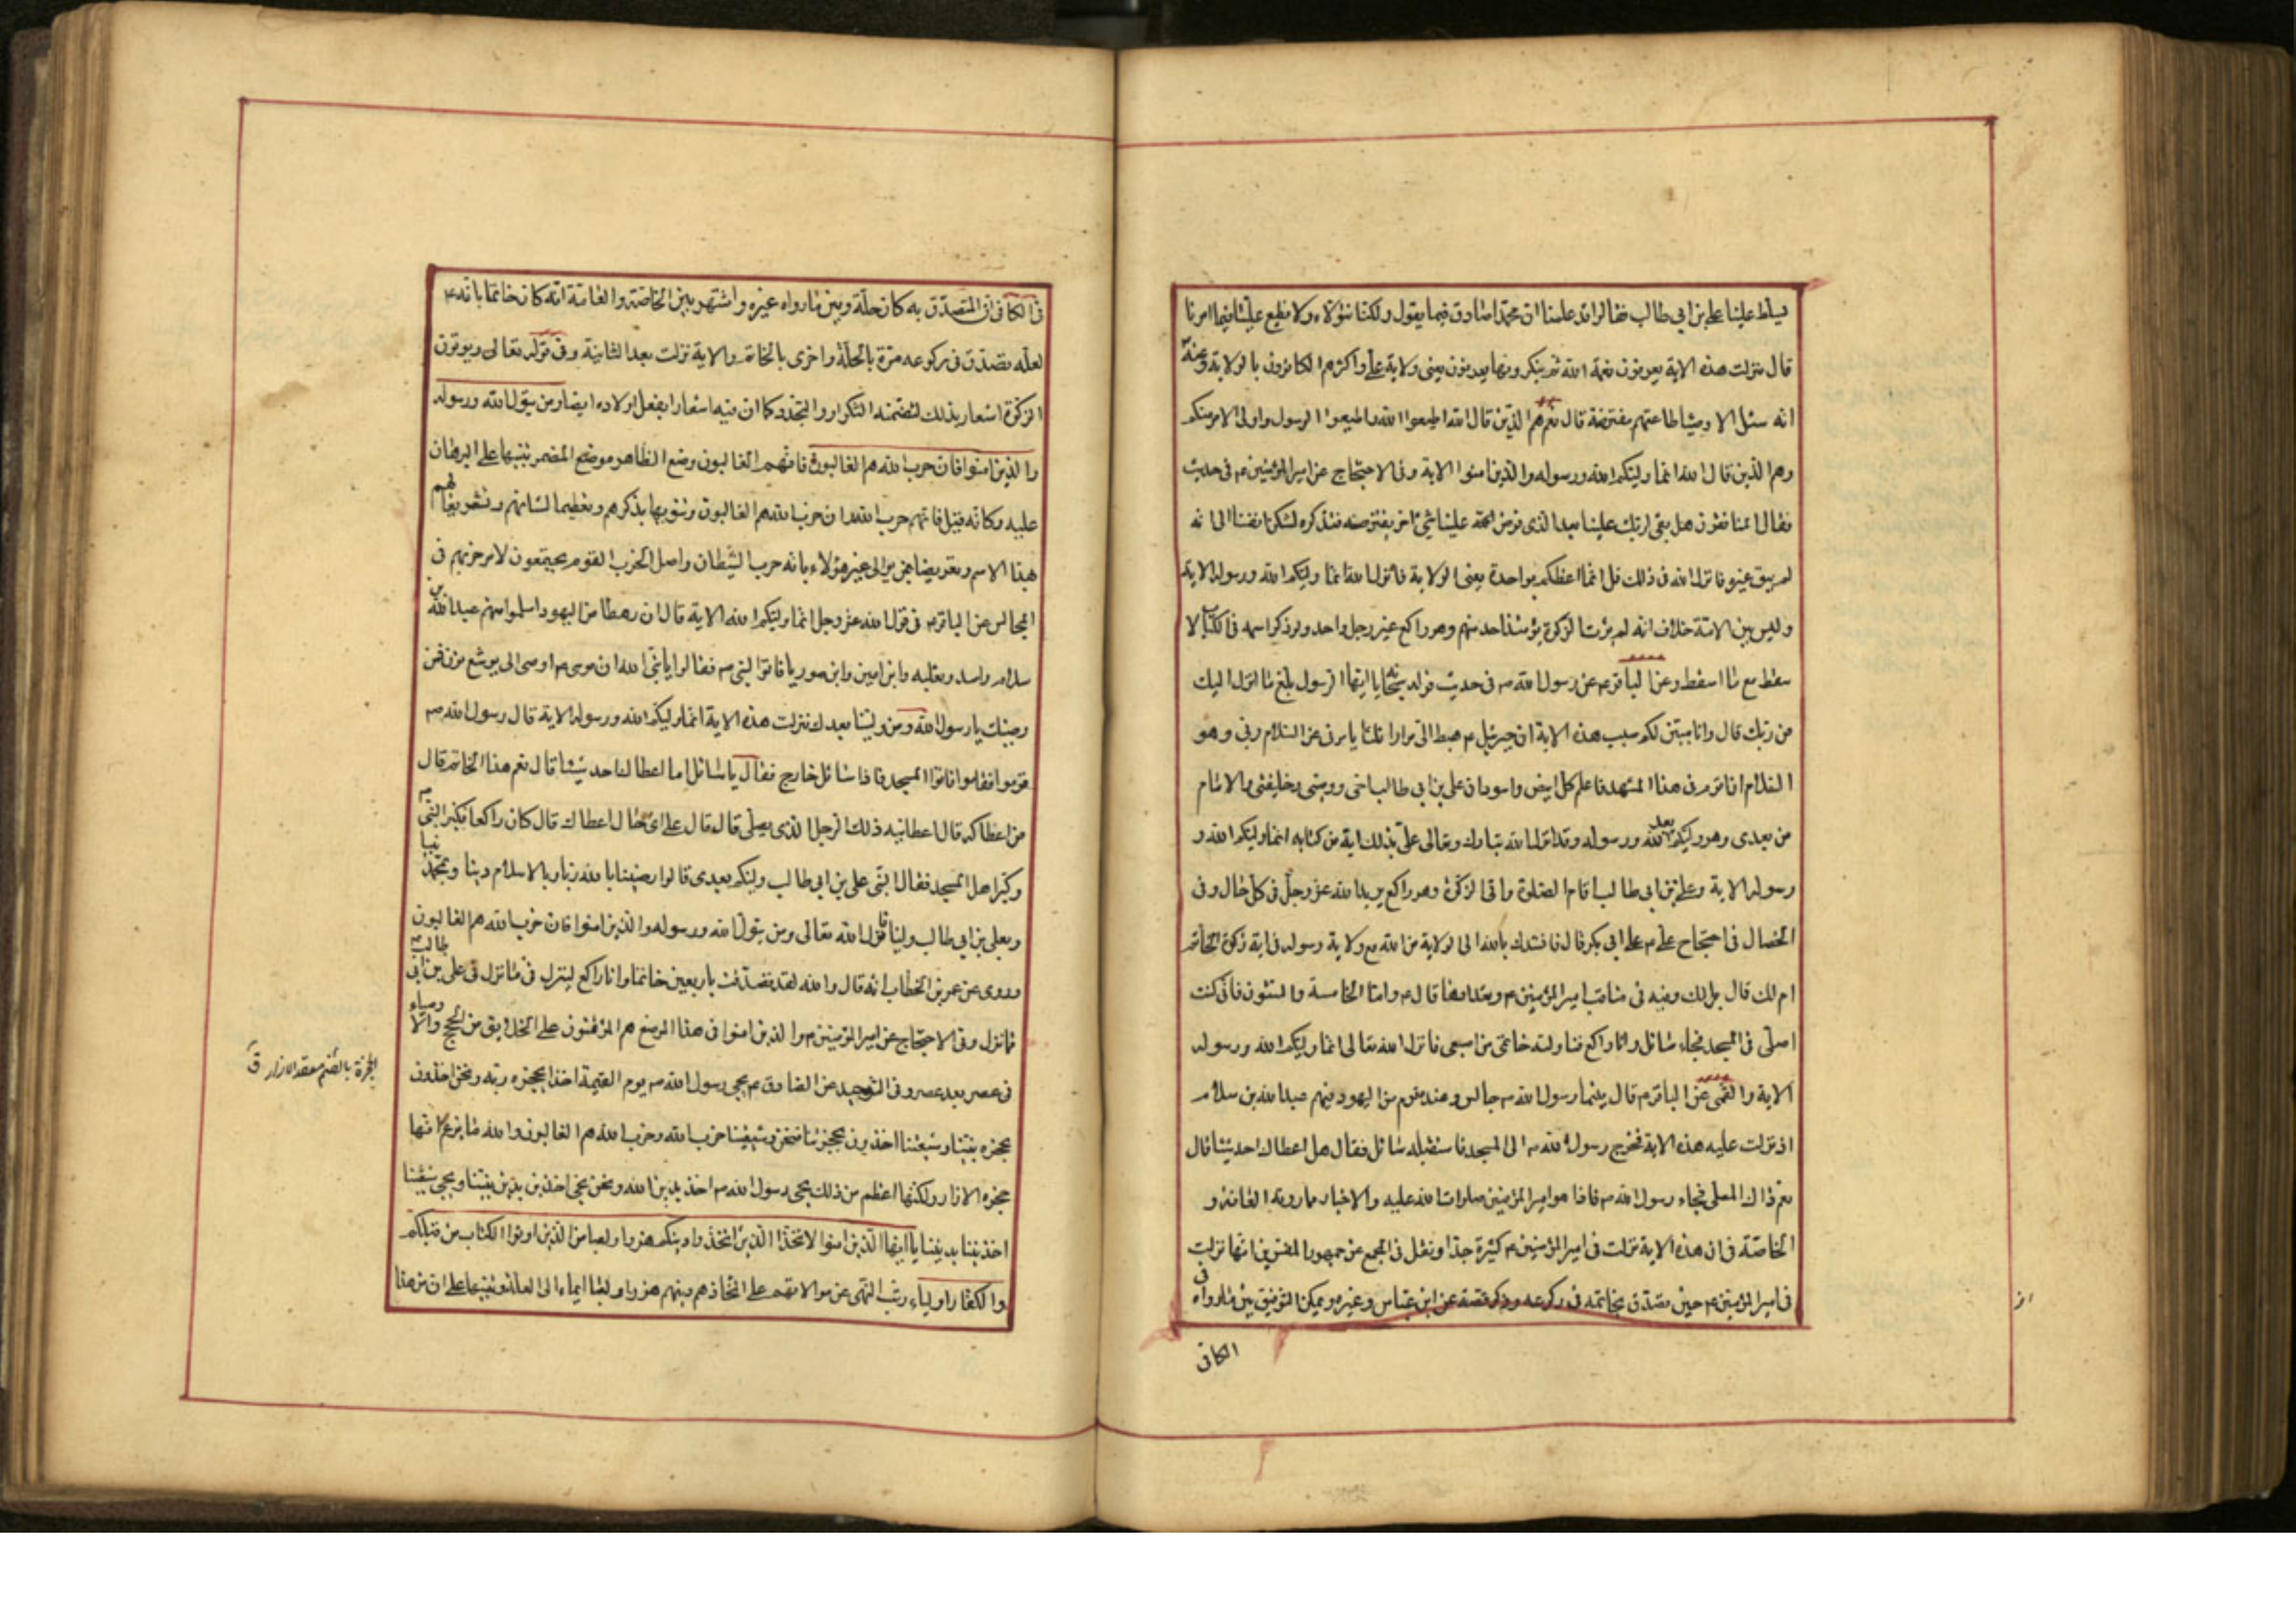 يسلط علينا علي بن ابي طالب فقالوا قد علمنا ان محمدا صادق فيما يقول ولكنا نتولاه ولا نطيع عليا فيما امرنا
قال فنزلت هذه الاية يعرفون نعمة الله ثم ينكرونها يعرفون يعني ولاية علي واكثرهم الكافرون بالولاية وعنه
انه سئل الاوصياء طاعتهم مفترضة قال نعم هم الذين قال الله اطيعوا الله واطيعوا الرسول واولى الامر منكم
وهم الذين قال الله انما وليكم الله ورسوله والذين امنوا الاية وفي الاحتجاج عن امير المؤمنين ع في حديث
فقال المنافقون هل بقي لربك علينا بعد الذي فرض علينا شيء اخر يفترضه فتذكره لتسكن انفسنا الى انه
لم يبق غيره فانزل الله في ذلك قل انما اعظكم بواحدة يعني الولاية فانزل الله انما وليكم الله ورسوله الاية
وليس بين الامة خلاف انه لم يؤت الزكوة يومئذ احد منهم وهو راكع غير رجل واحد ولو ذكر اسمه في الكتاب لا
سقط مع ما اسقط وعن الباقر ع عن رسول الله ص في حديث قوله تعالى يا ايها الرسول بلغ ما انزل اليك
من ربك قال وانا مبين لكم سبب هذه الاية ان جبرئيل ع هبط الى مرارا ثلثا يامرني عن السلام ربي وهو
السلام ان اقوم في هذا المشهد فاعلم كل ابيض واسود ان علي بن ابي طالب اخي ووصيي وخليفتي والامام
من بعدي وهو وليكم بعد الله ورسوله وقد انزل الله تبارك وتعالى علي بذلك اية من كتابه انما وليكم الله و
رسوله الاية وعلي بن ابي طالب اقام الصلوة واتى الزكوة وهو راكع يريد الله عز وجل في كل حال وفي
الخصال في احتجاج علي ع على ابي بكر قال فانشدك بالله الى الولاية من الله مع ولاية رسوله في اية زكوة الخاتم
ام لك قال بل لك وفيه في مناقب امير المؤمنين ع وتعدادها قال ع واما الخامسة والستون فاني كنت
اصلى في المسجد فجاء سائل وانا راكع فناولته خاتمي من اصبعي فانزل الله تعالى انما وليكم الله ورسوله
الاية والقمي عن الباقر ع قال بينما رسول الله ص جالس وعنده قوم من اليهود فيهم عبد الله بن سلام
اذ نزلت عليه هذه الاية فخرج رسول الله ص الى المسجد فاستقبله سائل فقال هل اعطاك احد شيئا قال
نعم ذاك المصلى فجاء رسول الله ص فاذا هو امير المؤمنين صلوات الله عليه والاخبار مما روته العامة و
الخاصة في ان هذه الاية نزلت في امير المؤمنين ع كثيرة جدا ونقل في المجمع عن جمهور المفسرين انها نزلت
في امير المؤمنين ع حين تصدق بخاتمه في ركوعه وذكر قصته عن ابن عباس وغيره ويمكن التوفيق بين ما رواه في
الكافي
في الكافي ان المتصدق به كان حلة وبين ما رواه غيره واشتهر بين الخاصة والعامة انه كان خاتما بانه ع
لعله تصدق في ركوعه مرة بالحلة واخرى بالخاتم والاية نزلت بعد الثانية وفي قوله تعالى ويؤتون
الزكوة اشعار بذلك لتضمنه التكرار والتجدد كما ان فيه اشعارا بفعل اولاده ايضا ومن يتول الله ورسوله
والذين امنوا فان حزب الله هم الغالبون فانهم الغالبون وضع الظاهر موضع المضمر تنبيها على البرهان
عليه وكانه قيل فانهم حزب الله وان حزب الله هم الغالبون وتنويها بذكرهم وتعظيما لشانهم وتشريفا لهم
بهذا الاسم وتعريضا بمن يوالى غير هؤلاء بانه حزب الشيطان واصل الحزب القوم يجتمعون لامر حزبهم في
المجالس عن الباقر ع في قول الله عز وجل انما وليكم الله الاية قال ان رهطا من اليهود اسلموا منهم عبد الله بن
سلام واسد وثعلبه وابن امين وابن صوريا فاتوا النبي ص فقالوا يا نبي الله ان موسى ع اوصى الى يوشع بن نون فمن
وصيك يا رسول الله ومن ولينا بعدك فنزلت هذه الاية انما وليكم الله ورسوله الاية قال رسول الله ص
قوموا فقاموا فاتوا المسجد فاذا سائل خارج فقال يا سائل اما اعطاك احد شيئا قال نعم هذا الخاتم قال
من اعطاكه قال اعطانيه ذلك الرجل الذي يصلي قال قال على اي حال اعطاك قال كان راكعا فكبر النبي ص
وكبر اهل المسجد فقال النبي علي بن ابي طالب وليكم بعدي قالوا رضينا بالله ربا وبالاسلام دينا وبمحمد نبيا
وبعلي بن ابي طالب وليا فانزل الله تعالى ومن يتول الله ورسوله والذين امنوا فان حزب الله هم الغالبون
وروى عن عمر بن الخطاب انه قال والله لقد تصدقت باربعين خاتما وانا راكع لينزل في ما نزل في علي بن ابي طالب
فما نزل وفي الاحتجاج عن امير المؤمنين ع والذين امنوا في هذا الموضع هم المؤتمنون على الخلايق من الحجج والاوصياء
في عصر بعد عصر وفي التوحيد عن الصادق ع يجيء رسول الله ص يوم القيمة اخذا بحجزة ربه ونحن اخذون
بحجزة نبينا وشيعتنا اخذون بحجزتنا فنحن وشيعتنا حزب الله وحزب الله هم الغالبون والله ما يزعم انها
حجزة الازار ولكنها اعظم من ذلك يجيء رسول الله ص اخذ بدين الله ونحن نجيء اخذين بدين نبينا ويجيء شيعتنا
اخذين بديننا يا ايها الذين امنوا لا تتخذوا الذين اتخذوا دينكم هزوا ولعبا من الذين اوتوا الكتاب من قبلكم
والكفار اولياء رتب النهي عن موالاتهم على اتخاذهم دينهم هزوا ولعبا ايماء الى العلة وتنبيها على ان من هذا
الحجزة بالضم معقد الازار ق